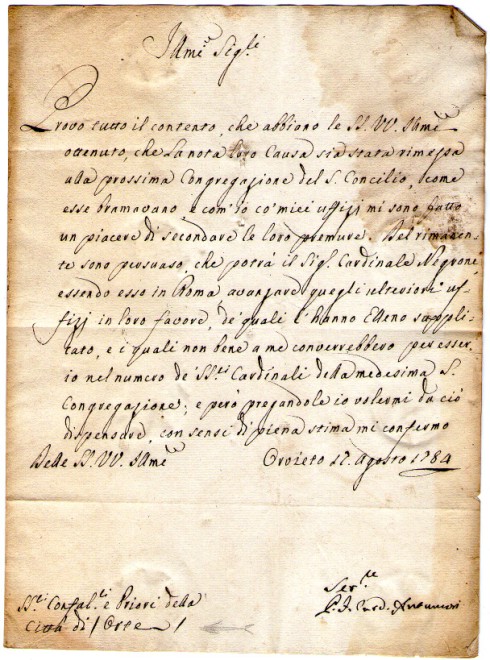 Illmi Sigri
Provo tutto il contento, che abbiano le SS. VV. Illme
ottenuto, che la nota loro Causa sia stata rimessa
alla prossima Congregazione del S. Concilio, come
esse bramavano e com'io co' miei uffizj mi sono fatto
un piacere di secondare le loro premure. Del rimanen-
te sono persuaso, che potrà il Sigr Cardinale Negrone
essendo esso in Roma, avanzare quegli ulteriori uf-
fizj in loro favore, de' quali l'hanno suppli-
cato, e i quali non bene a me converrebbero per esser
io nel numero de SSri Cardinali della medesima S.
Congregazione; e però pregandole io volermi da ciò
dispensare, con sensi di piena stima mi confermo
Delle SS. VV. Illme Orvieto 17. Agosto 1784
Serre
SSri Confalre e Priori della Card. Antamori
Città di / Orte /